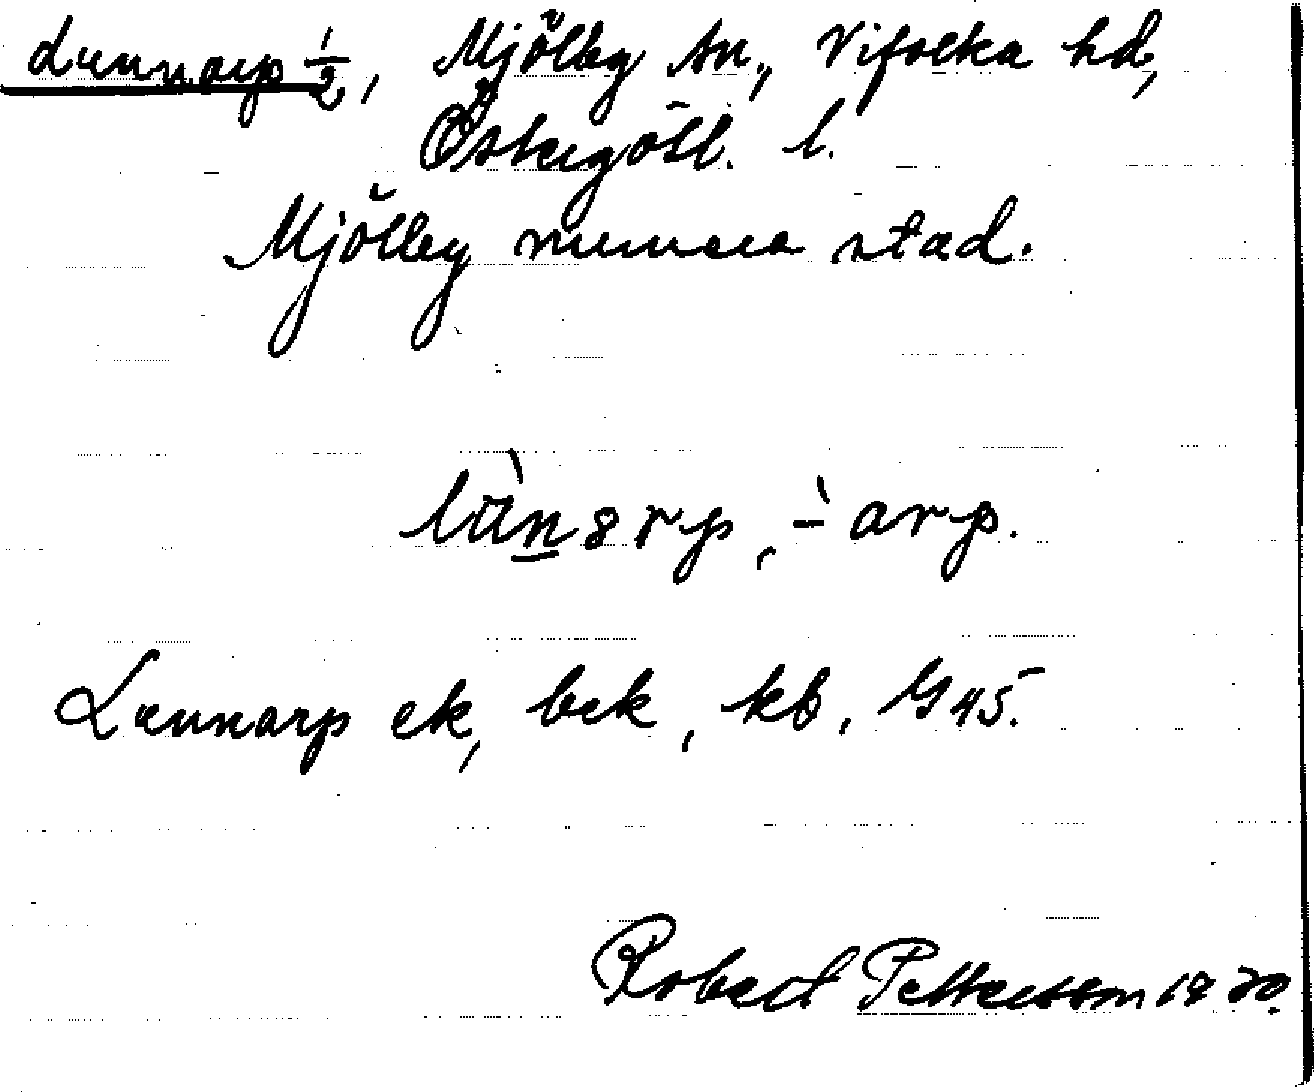 Lunnarp 1/2, Mjölby sn., Vifolka hd,
Östergötl. l.
Mjölby numera stad.
lùn̲ɜrp, -̀ arp.
Lunnarp ek, bek, kb. G45.
Robert Pettersson 1930.